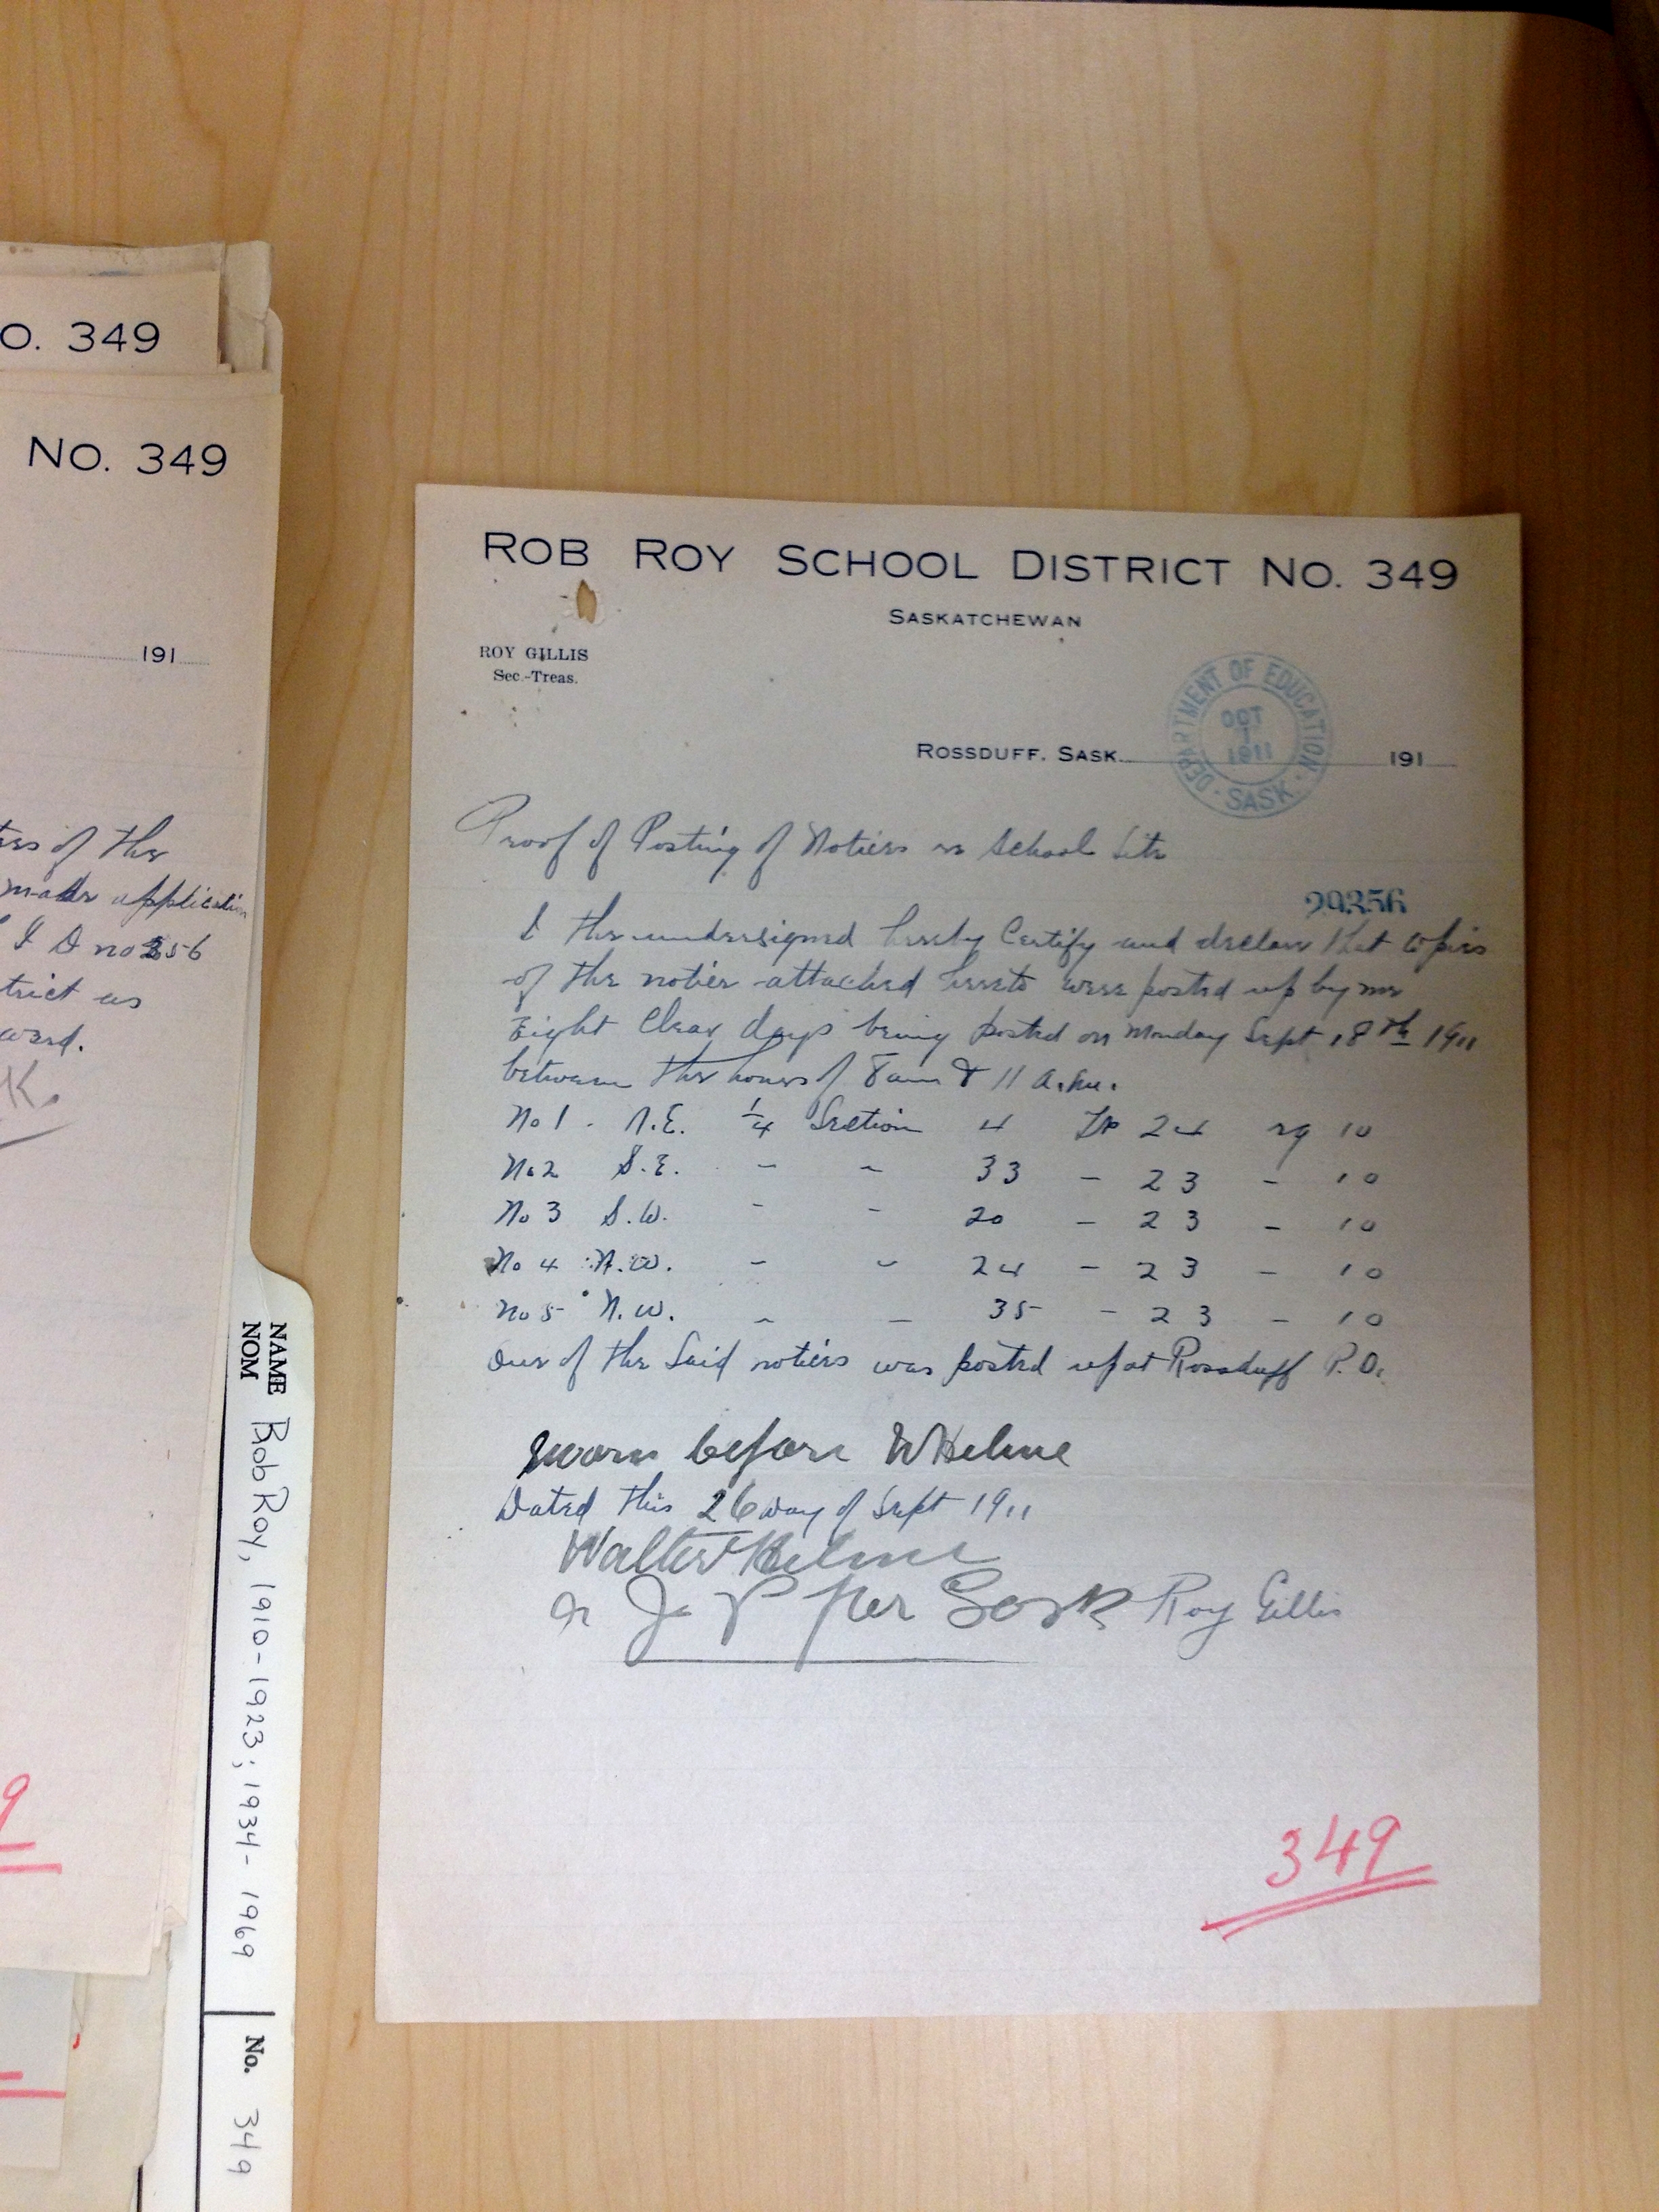 O. 349
No. 349
191
ters of the
made application
L I D no 356
trict as
ward.
K.
9
NAME
NOM
Rob Roy, 1910-1923; 1934-1969
No. 349
ROB ROY SCHOOL DISTRICT No. 349
SASKATCHEWAN
ROY GILLIS
Sec.-Treas.
DEPARTMENT OF EDUCATION
OCT
1
1911
SASK.
ROSSDUFF, SASK. 191
Proof of Posting of Notices re School Site
29356
I the undersigned hereby Certify and declare that copies
of the notice attached hereto were posted up by me
Eight Clear days being posted on Monday Sept 18th 1911
between the hours of 8 am & 11 a.m.
No 1. N.E. 1/4 Section 4 Tp 24 rg 10
No 2 S.E. - - 33 - 23 - 10
No 3 S.W. - - 20 - 23 - 10
No 4 N.W. - - 24 - 23 - 10
No 5 N.W. - - 35 - 23 - 10
One of the Said notices was posted up at Rossduff P.O.
Sworn before W Helme
Dated this 26 day of Sept 1911
Walter Helme
a J P for Sask Roy Gillis
349